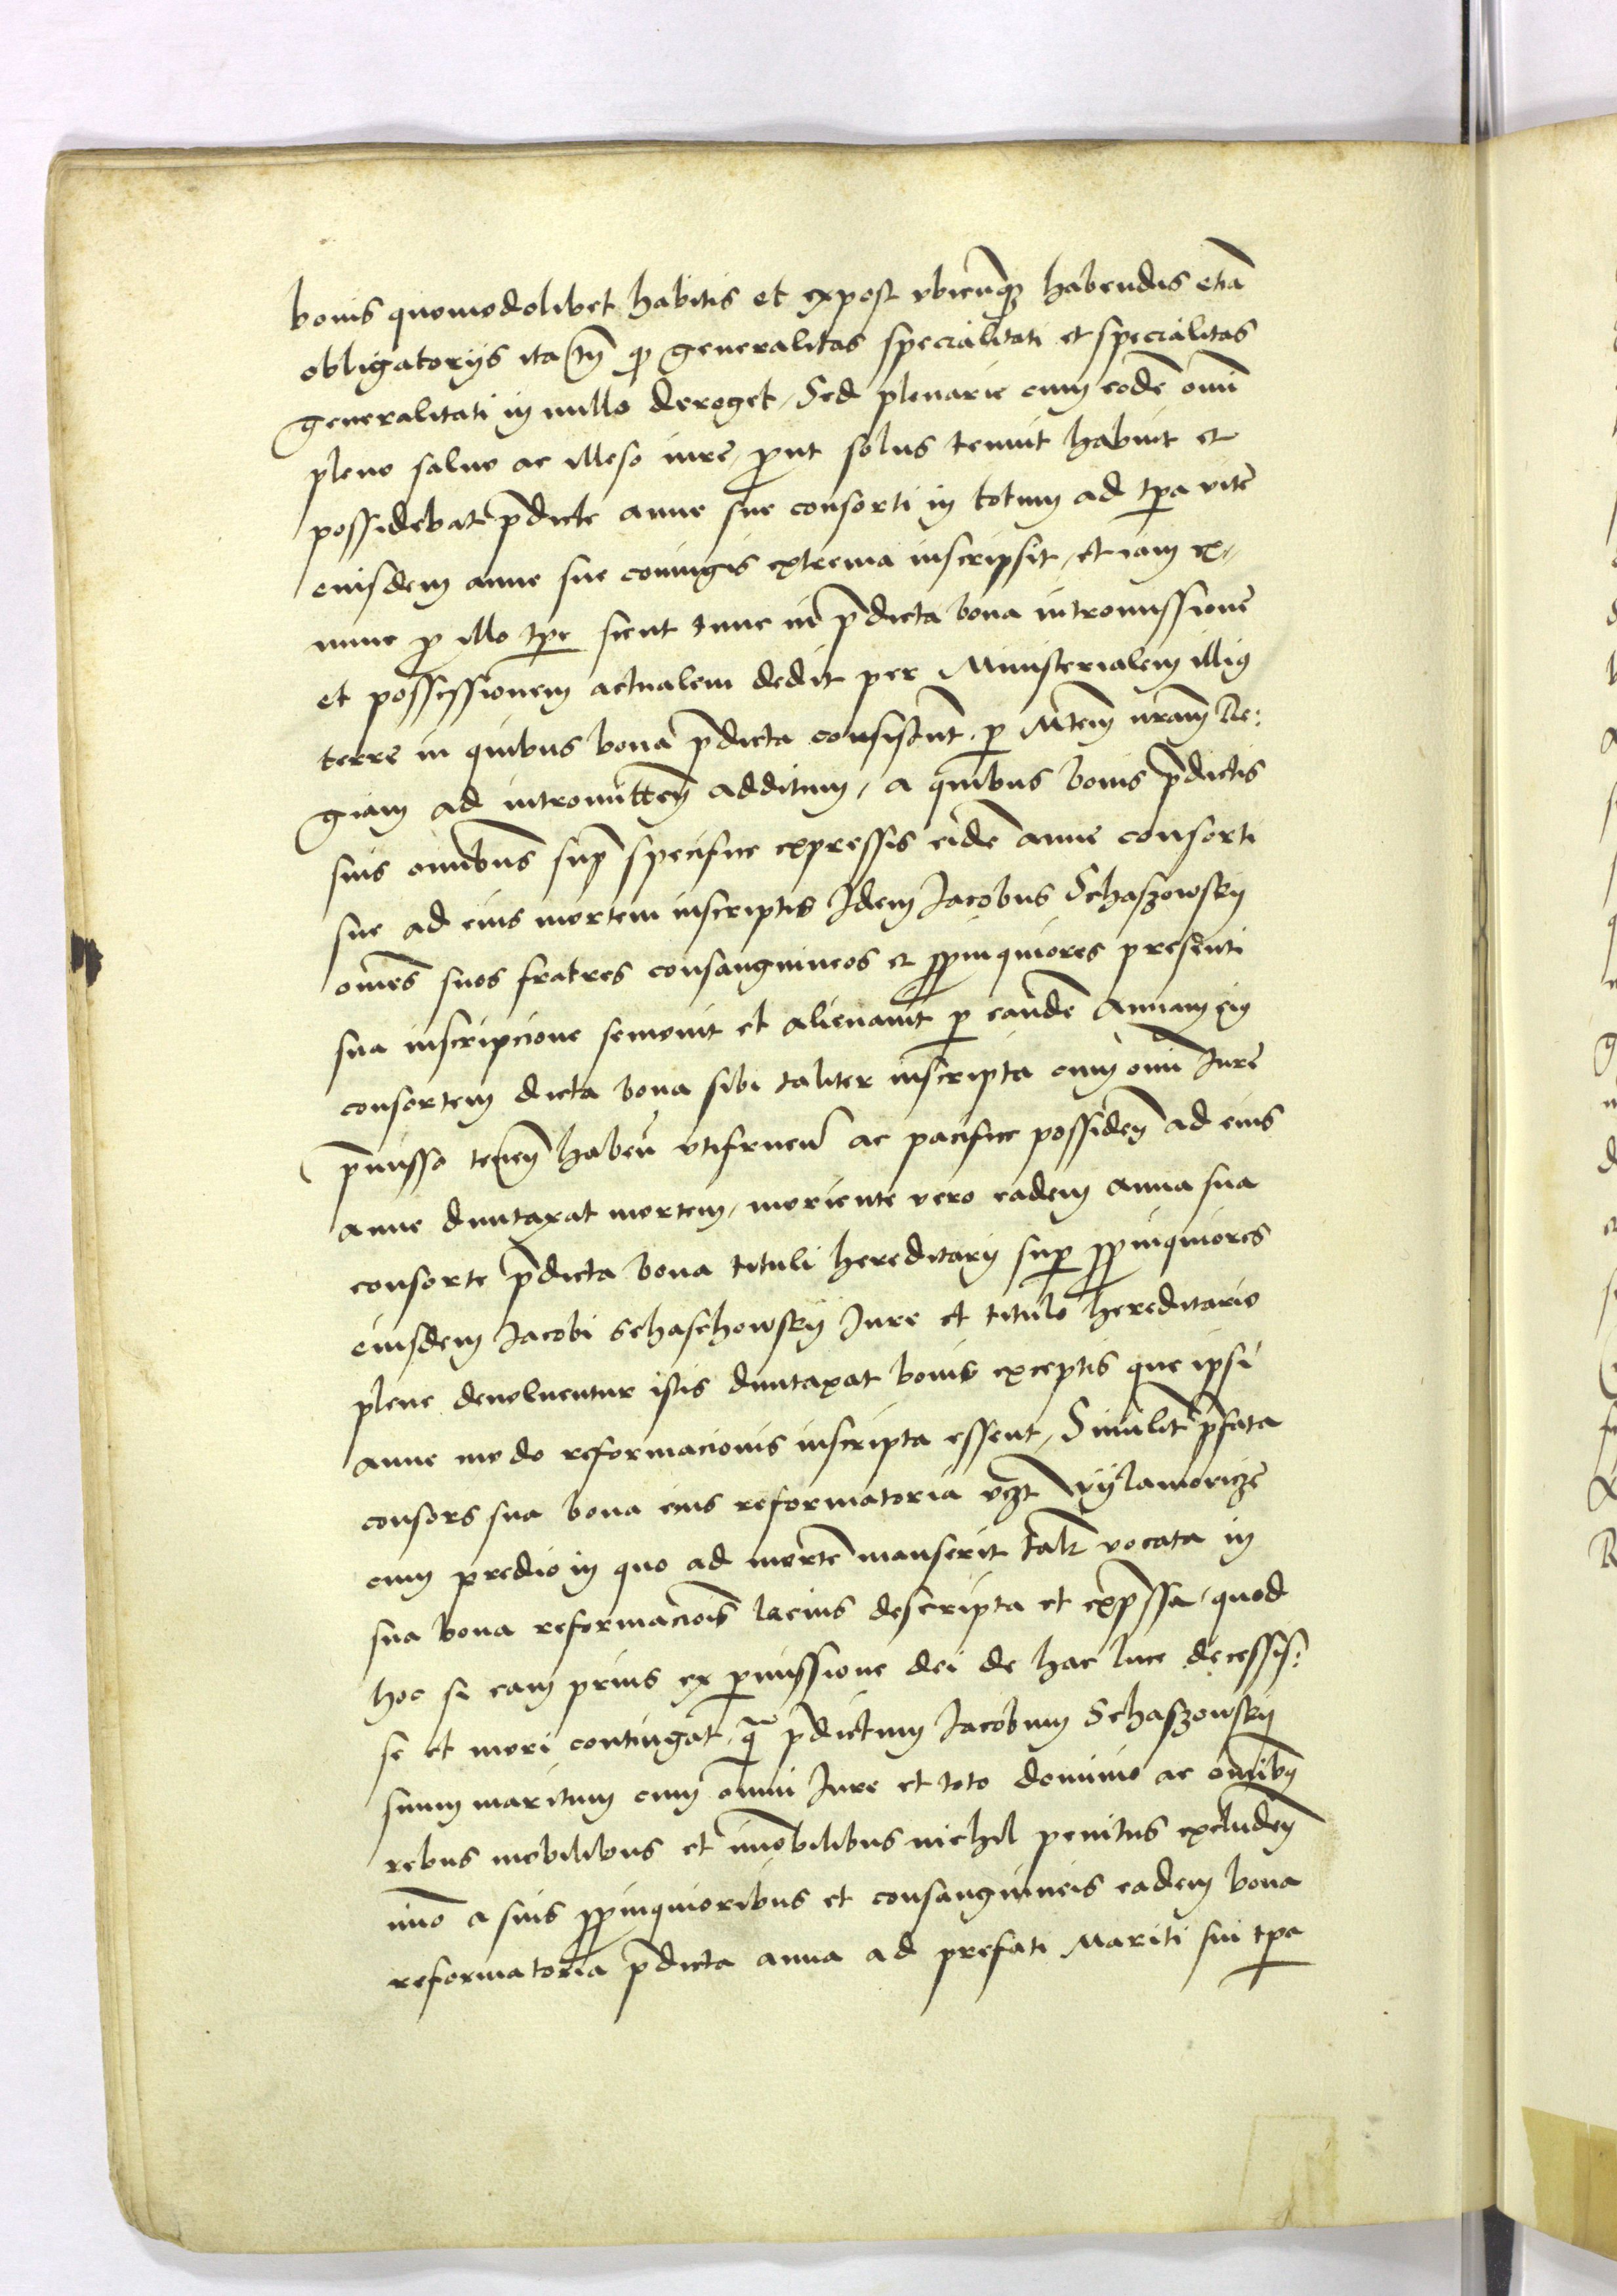 bonis quomodolibet habitis et expost vbicūqȝ habendis etiā
obligatorijs ita tñ qp generalitas specialitati et specialitas
generalitati in nullo deroget, Sed plenarie cum eodē omī
pleno saluo ac illeso iure, put solus tenuit habuit et
possidebat p̄dicte anne sue consorti in totum ad tp̄a vite
eiusdem anne sue coniugis extrema inscripsit, et iam ex
nunc p illo tp̄e sicut tunc in p̄dicta bona intromissionē
et possessionem actualem dedit per Ministerialem illius
terre in quibus bona p̄dicta consistūt, p Mtem nr̄am Re:
giam ad intromitteñ additum, a quibus bonis p̄dictis
suis omībus sup̄ specifice expressis eidē anne consorti
sue ad eius mortem inscriptis Idem Jacobus Schaszowsky
om̄es suos fratres consanguineos et p̄pinquiores presenti
sua inscripcione semouit et alienauit p eandē Annam eius
consortem dicta bona sibi taliter inscripta cum omī Jure
p̄misso teneñ habeñ vtifrueñ ac pacifice possideñ ad eius
anne duntaxat mortem, moriente vero eadem anna sua
consorte p̄dicta bona tituli hereditarij sup̄ p̄pinquiores
eiusdem Jacobi Schaschowsky Jure et titulo hereditario
plene deuoluentur istis duntaxat bonis exceptis que ipsi
anne modo reformacionis inscripta essent, Similit̄ p̄fata
consors sua bona eius reformatoria vcȝt Wylamowicze
cum predio in quo ad mortē manserit vocata in
sua bona reformacōis lacius descripta et exp̄ssa, quod
hoc si eam prius ex p̄missione dei de hac luce decessis:
se et mori contingat, q̄ p̄dictum Jacobum Schaszowsky
suum maritum cum omni Jure et toto dominio ac omībus
rebus mobilibus et im̄obilibus nichil penitus excludeñ
im̄o a suis p̄pinquioribus et consanguineis eadem bona
reformatoria p̄dicta anna ad prefati Mariti sui tp̄a